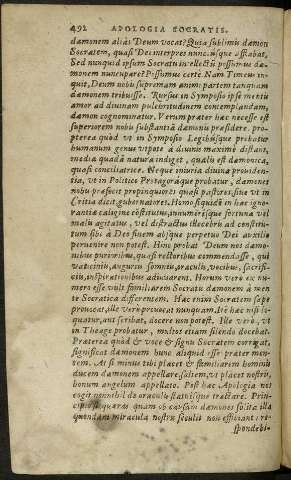 492 APOLOGIA SOCRATIS.
dæmonem aliàs Deum vocat? Quia sublimis dæmon
Socratem, quasi Dei interpres nuncius
Sed nunquid ipsum Socratis intellectū possumus dæ-
monem nuncupare? Possumus certè. Nam Timæus in-
quit, Deum nobis supremam animi partem tanquam
dæmonem tribuisse. Rursus in Symposio ipse mentis
amor ad divinam pulchritudinem contemplandam,
dæmon cognominatur. Verùm præter hæc necesse est
superiorem nobis substantiā dæmonis præsidere. pro-
pterea quòd vt in Symposio Legibúsque probatur
humanum genus vtpote à divinis maximè distans,
media quadā natura indiget, qualis est dæmonica,
quasi conciliatrice. Neque iniuria divina providen-
tia, vt in Politico Protagoráque probatur, dæmones
nobis præfecit propinquiores quasi pastores: sive vt in
Critia dicit, gubernatores. Homo siquidē in hac igno-
rantiæ caligine cōstitutus, innumerísque fortunæ vel
malis agitatus, vel distractus illecebris ad constitu-
tum sibi à Deo finem absque perpetuo Dei auxilio
pervenire non potest. Hinc probat Deum nos dæmo-
nibus purioribus, quasi rectoribus commendasse, qui
vaticiniis, auguriis somniis, oraculis, vocibus, sacrifi-
ciis, inspirationibus adiuvarent. Horum verò ex nu-
mero esse vult familiarem Socratis dæmonem à men-
te Socratica differentem. Hæc enim Socratem sæpe
provocat, ille verò provocat nunquam. Itē hæc nisi lo-
quatur, aut scribat, docere non potest. Ille verò, vt
in Theage probatur, multos etiam silendo docebat.
Præterea quòd & voce & signis Socratem corrigat,
significat dæmonem hunc aliquid esse præter men-
tem. At si minus tibi placet & familiarem hominis
ducem dæmonem appellare, saltem, vt placet nostris,
bonum angelum appellato. Post hæc Apologia nos
cogit nonnihil de oraculis statuísque tractare. Prin-
cipiò si quæras quam ob causam dæmones solita illa
quondam miracula nostris seculis non efficiant: re-
spondebi-